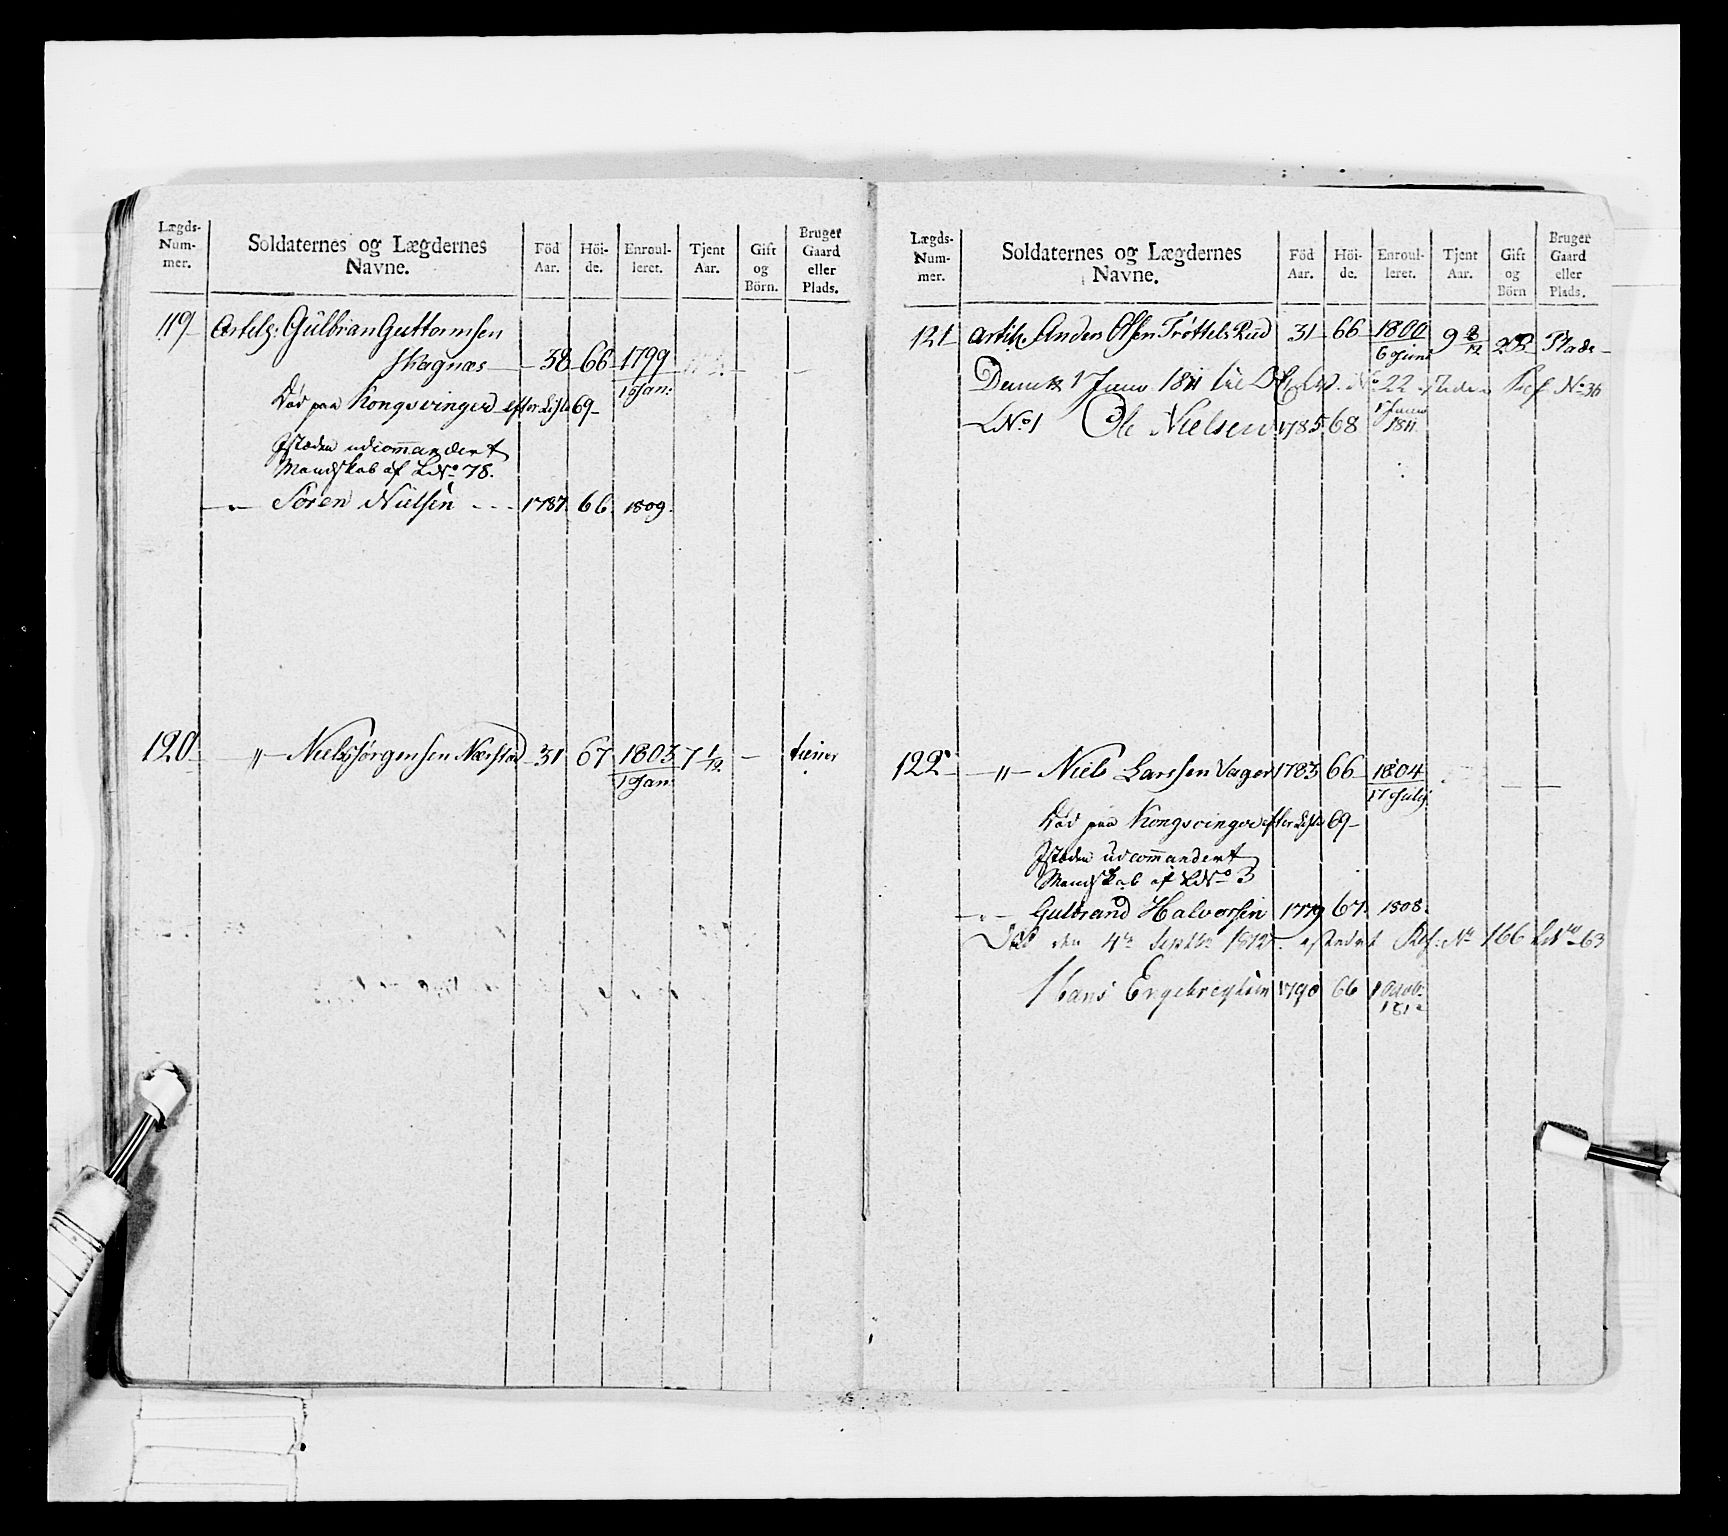 Lægds-Num-mer. Soldaternes og Lægdernes Navne. Föd Aar. Höi-de. Enroul-leret. Tjent Aar. Gift og Börn. Bruger Gaard eller Plads.
119 Artelr: Gulbran Guttormsen
Skagnæs 38 66 1799
1 Jan:
Död paa Kongsvinger efter Liste 69
Istæden udcommandert
Mandskab af LNo 78.
Sören Nielsen 1787 66 1809.
120 " Niels Jörgensen Nærstad 31 67 1803 7 1/12 - tiener
1 Jan:
Lægds-Num-mer. Soldaternes og Lægdernes Navne. Föd Aar. Höi-de. Enroul-leret. Tjent Aar. Gift og Börn Bruger Gaard eller Plads.
121 Anders Olsen Trøttels Rud 31 66 1800 9 Plads
6 Juni
1 Juni 1811 No 22 No 36
LNo 1 Ole Nielsen 1785 68 1 Juni
1811
122 " Niels Larssen Vager 1783 66 1804
17 July
Död paa Kongsvinger efter Liste 69
Istæden udcommandert
Mandskab af LNo 3
Gulbrand Halvorsen 1779 67 1808.
den 4de Septbr 1812 No 166 63
Hans Engebregtsen 1790 66 1 Octobr
181